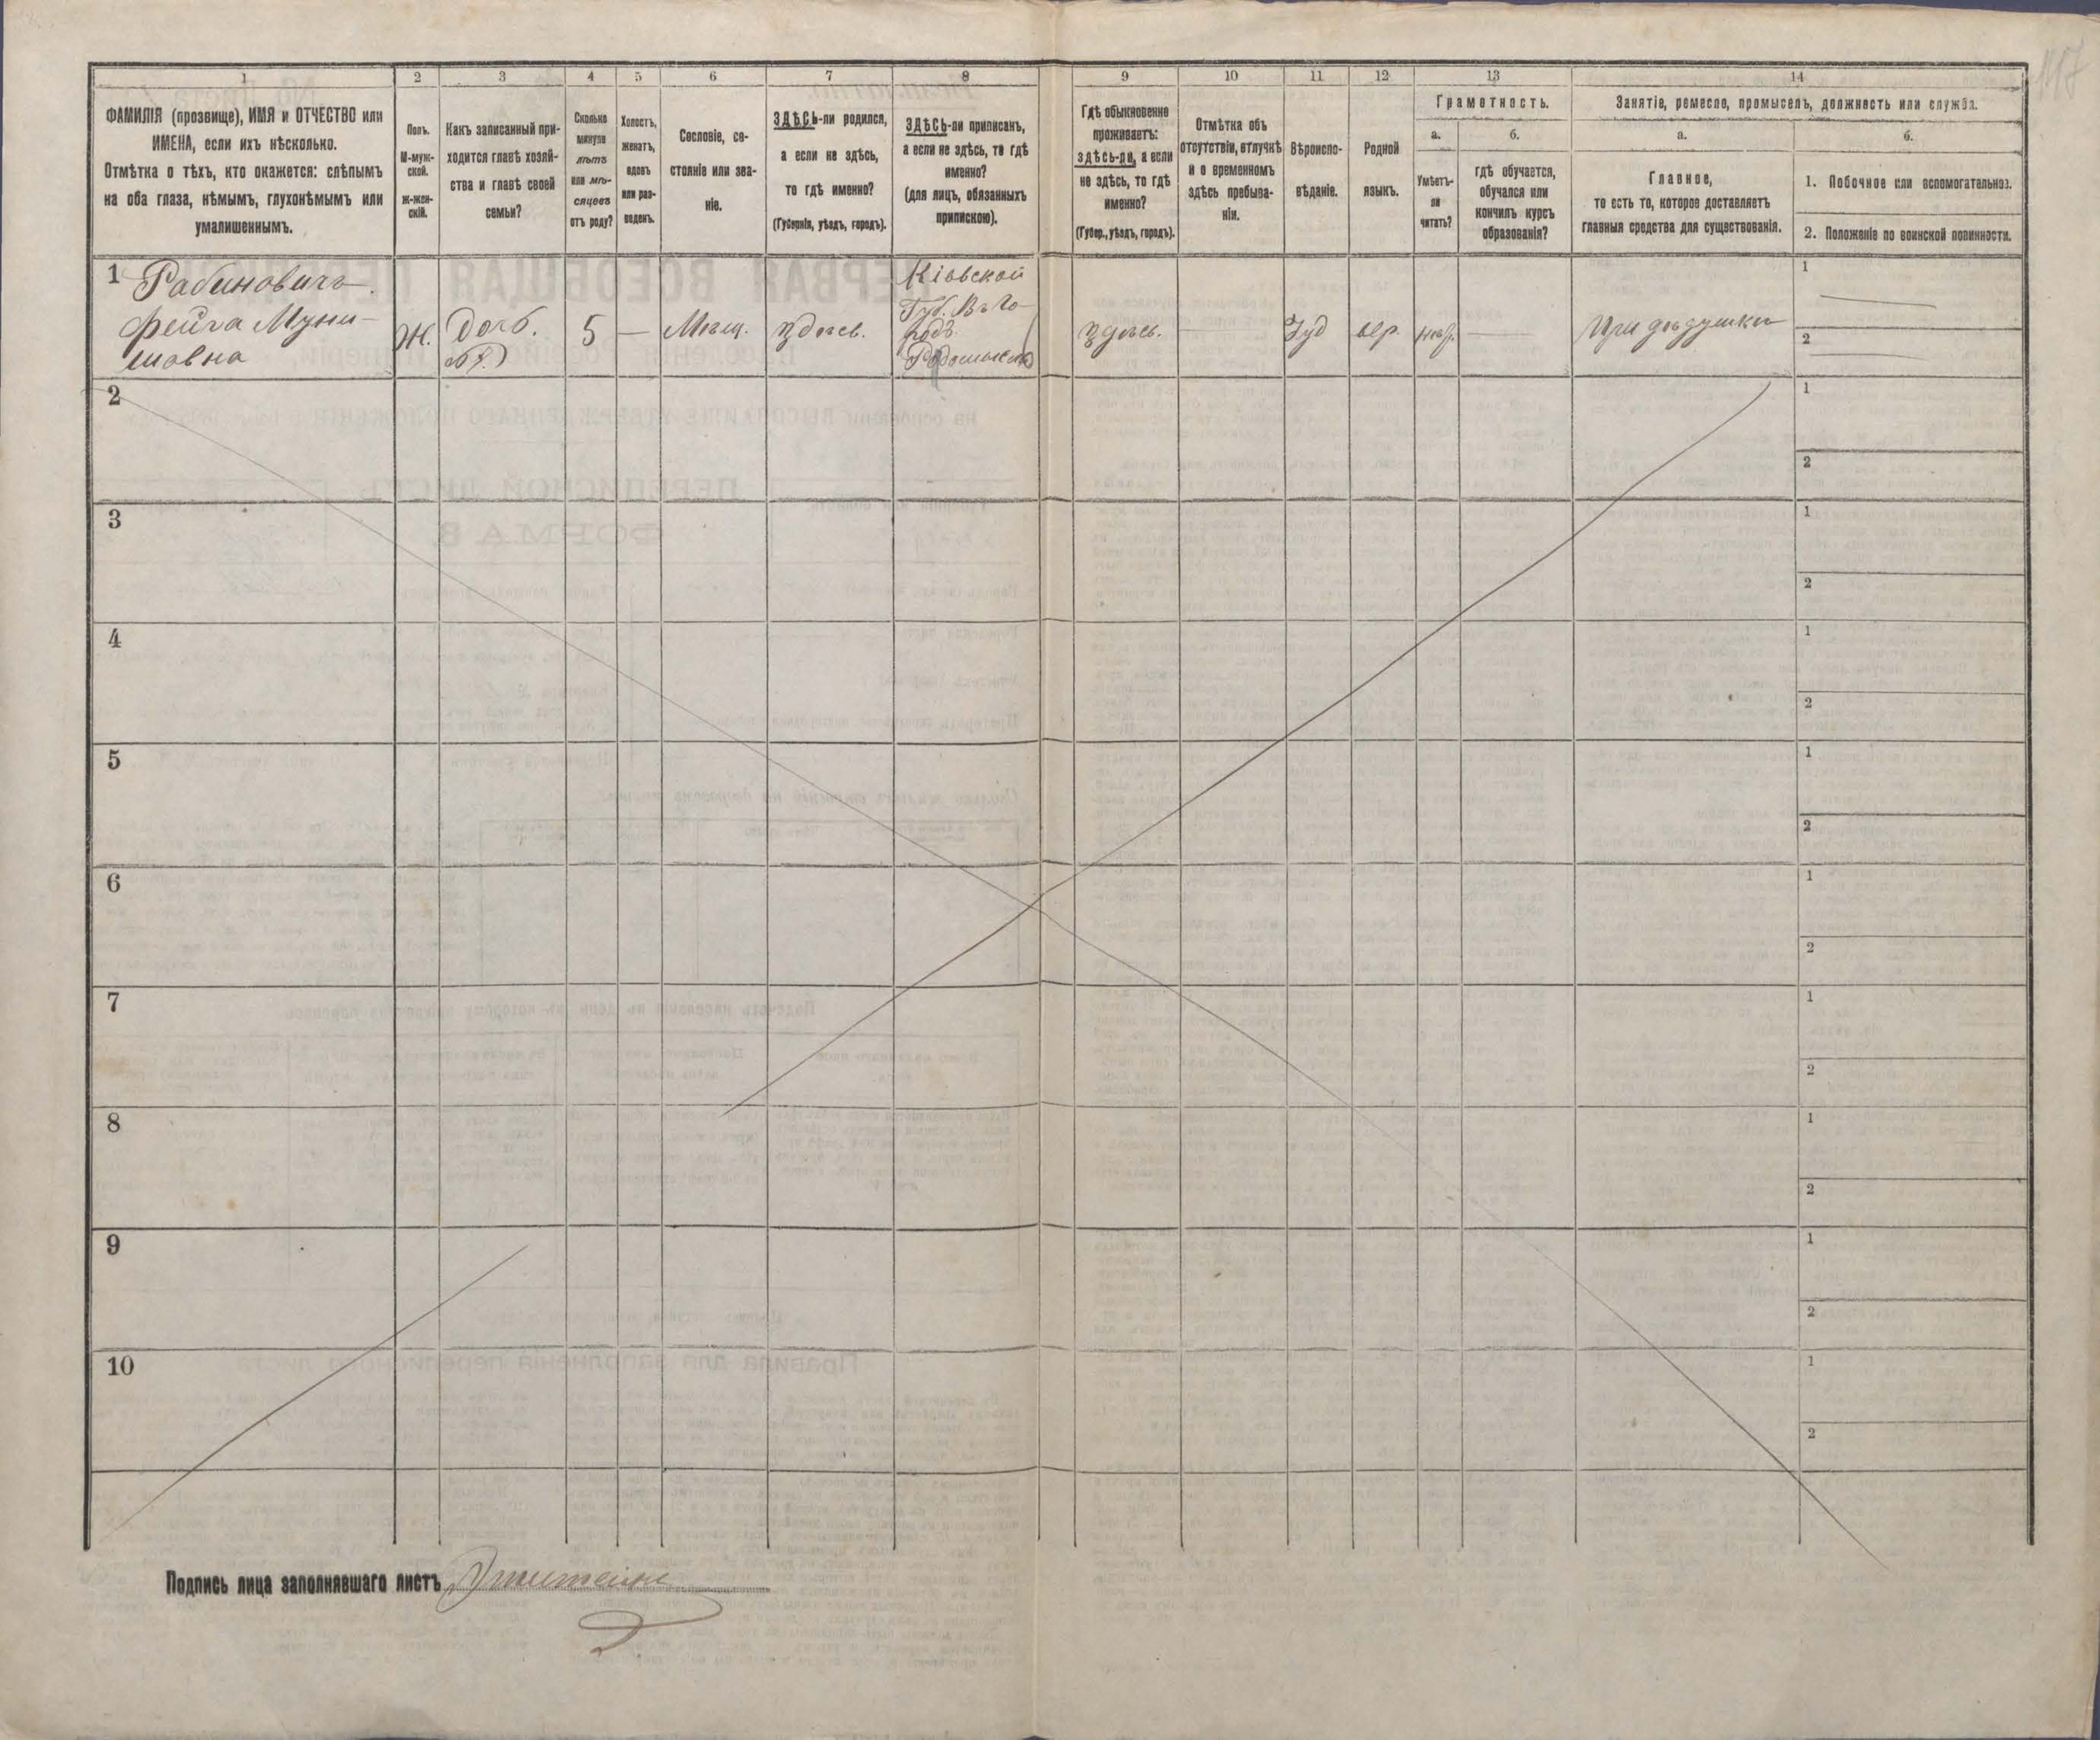 117
1
2
3
4
5
6
7
8
9
10
11
12
13
14
ФАМИЛІЯ (прозвище), ИМЯ и ОТЧЕСТВО или
ИМЕНА, если ихъ нѣсколько.
Отмѣтка о тѣхъ, кто окажется: слѣпымъ
на оба глаза, нѣмымъ, глухонѣмымъ или
умалишеннымъ.
Полъ.
М-муж-
ской.
Ж-жен-
скій.
Какъ записанный при-
ходится главѣ хозяй-
ства и главѣ своей
семьи?
Сколько
минуло
лѣтъ
или мѣ-
сяцевъ
отъ роду?
Холостъ,
женатъ,
вдовъ
или раз-
веденъ.
Сословіе, со-
стояніе или зва-
ніе.
ЗДѢСЬ-ли родился,
а если не здѣсь,
то гдѣ именно?
(Губернія, уѣздъ, городъ).
ЗДѢСЬ-ли приписанъ,
а если не здѣсь, то гдѣ
именно?
(для лицъ, обязанныхъ
припискою).
Гдѣ обыкновенно
проживаетъ:
здѣсь-ли, а если
не здѣсь, то гдѣ
именно?
(Губер., уѣздъ, городъ).
Отмѣтка объ
отсутствіи, отлучкѣ
и о временномъ
здѣсь пребыва-
ніи.
Вѣроиспо-
вѣданіе.
Родной
языкъ.
Грамотность.
а.
Умѣетъ-
ли
читать?
б.
гдѣ обучается,
обучался или
кончилъ курсъ
образованія?
Занятіе, ремесло, промыселъ, должность или служба.
а.
Главное,
то есть то, которое доставляетъ
главныя средства для существованія.
б.
1. Побочное или вспомогательное.
2. Положеніе по воинской повинности.
1 Рабиновичъ
Фейга Муни-
шовна
Ж.
Дочь
5
—
Мѣщ.
Здѣсь.
Кіевской
Губ. Въ Го-
родѣ
Радомыслѣ
Здѣсь.
—
Іуд
евр.
—
При дѣдушки
1 —
2 —
2
1
2
3
1
2
4
1
2
5
1
2
6
1
2
7
1
2
8
1
2
9
1
2
10
1
2
Подпись лица заполнявшаго листъ